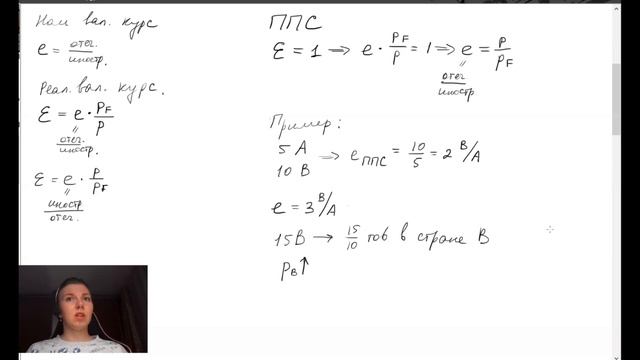 Ном вал. курс
e = отеч. / иностр.
Реал. вал. курс.
Ɛ = e · P_F / P
отеч. / иностр.
Ɛ = e · P / P_F
иностр / отеч.
ППС
Ɛ = 1 ⟹ e · P_F / P = 1 ⟹ e = P / P_F
отеч / иностр
Пример:
5 A
10 B ⟹ e_ППС = 10/5 = 2 B/A
e = 3 B/A
15 B → 15/10 тов в стране B
P_B ↑